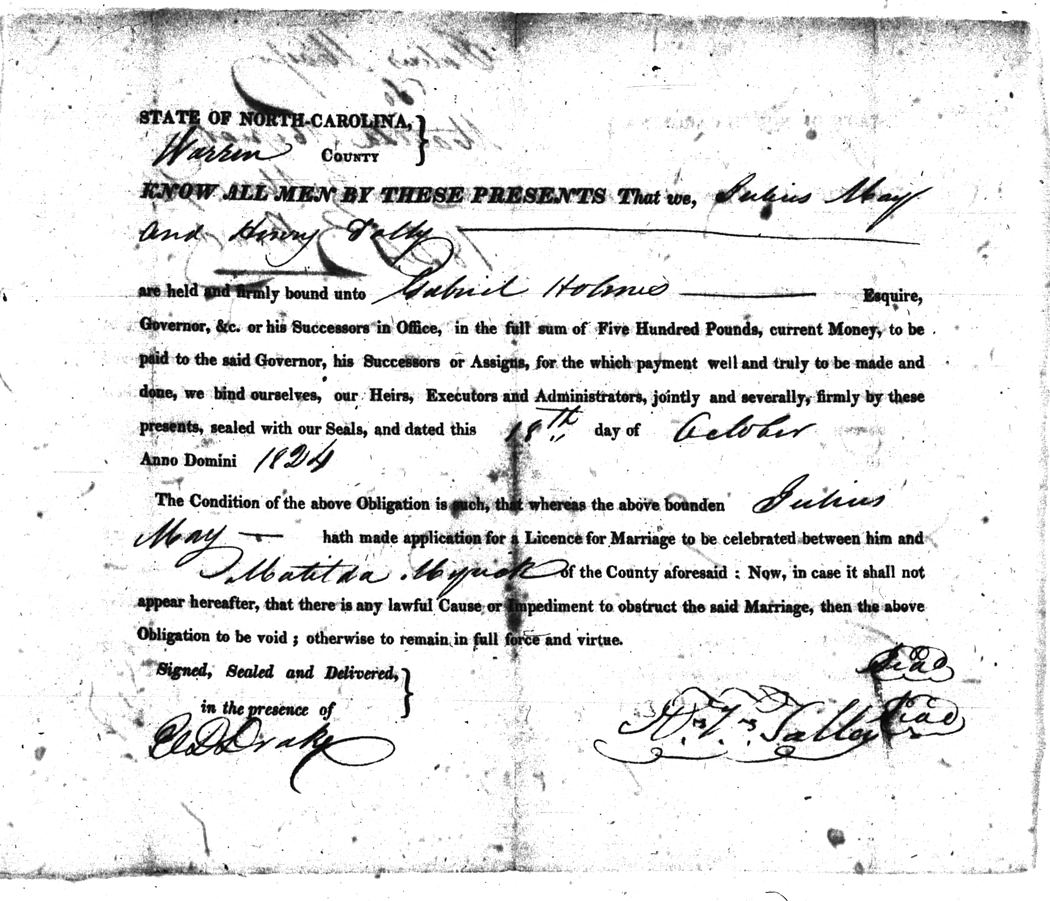 STATE OF NORTH-CAROLINA,
Warren COUNTY
KNOW ALL MEN BY THESE PRESENTS That we, Julius May
and Henry
are held and firmly bound unto Gabriel Holmes Esquire,
Governor, &c. or his Successors in Office, in the full sum of Five Hundred Pounds, current Money, to be
paid to the said Governor, his Successors or Assigns, for the which payment well and truly to be made and
done, we bind ourselves, our Heirs, Executors and Administrators, jointly and severally, firmly by these
presents, sealed with our Seals, and dated this 18th day of October
Anno Domini 1824
The Condition of the above Obligation is such, that whereas the above bounden Julius
May hath made application for a Licence for Marriage to be celebrated between him and
Matilda Myrick of the County aforesaid : Now, in case it shall not
appear hereafter, that there is any lawful Cause or Impediment to obstruct the said Marriage, then the above
Obligation to be void ; otherwise to remain in full force and virtue.
Signed, Sealed and Delivered,
in the presence of
Seal
Seal
Drake